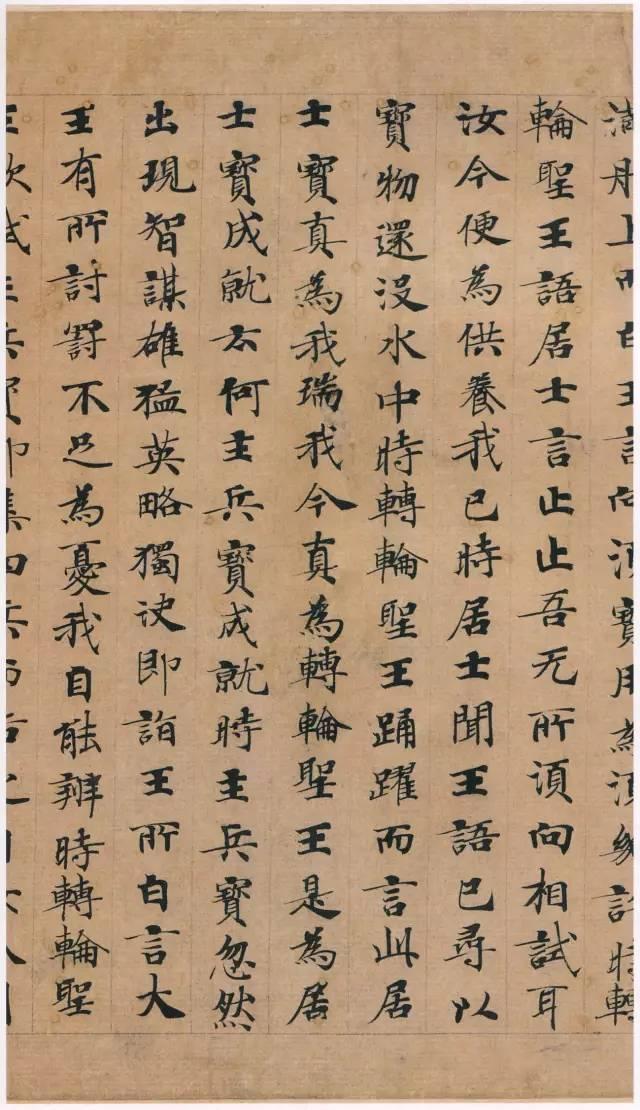 滿舩上而白王言向湏寶用為湏幾許時轉
輪聖王語居士言止止吾无所湏向相試耳
汝今便為供養我已時居士聞王語已尋以
寶物還沒水中時轉輪聖王踊躍而言此居
士寶真為我瑞我今真為轉輪聖王是為居
士寶成就云何主兵寶成就時主兵寶忽然
出現智謀雄猛英略獨决即詣王所白言大
王有所討罰不足為憂我自能辦時轉輪聖
王欲試主兵寶即集四兵而告之曰汝今用